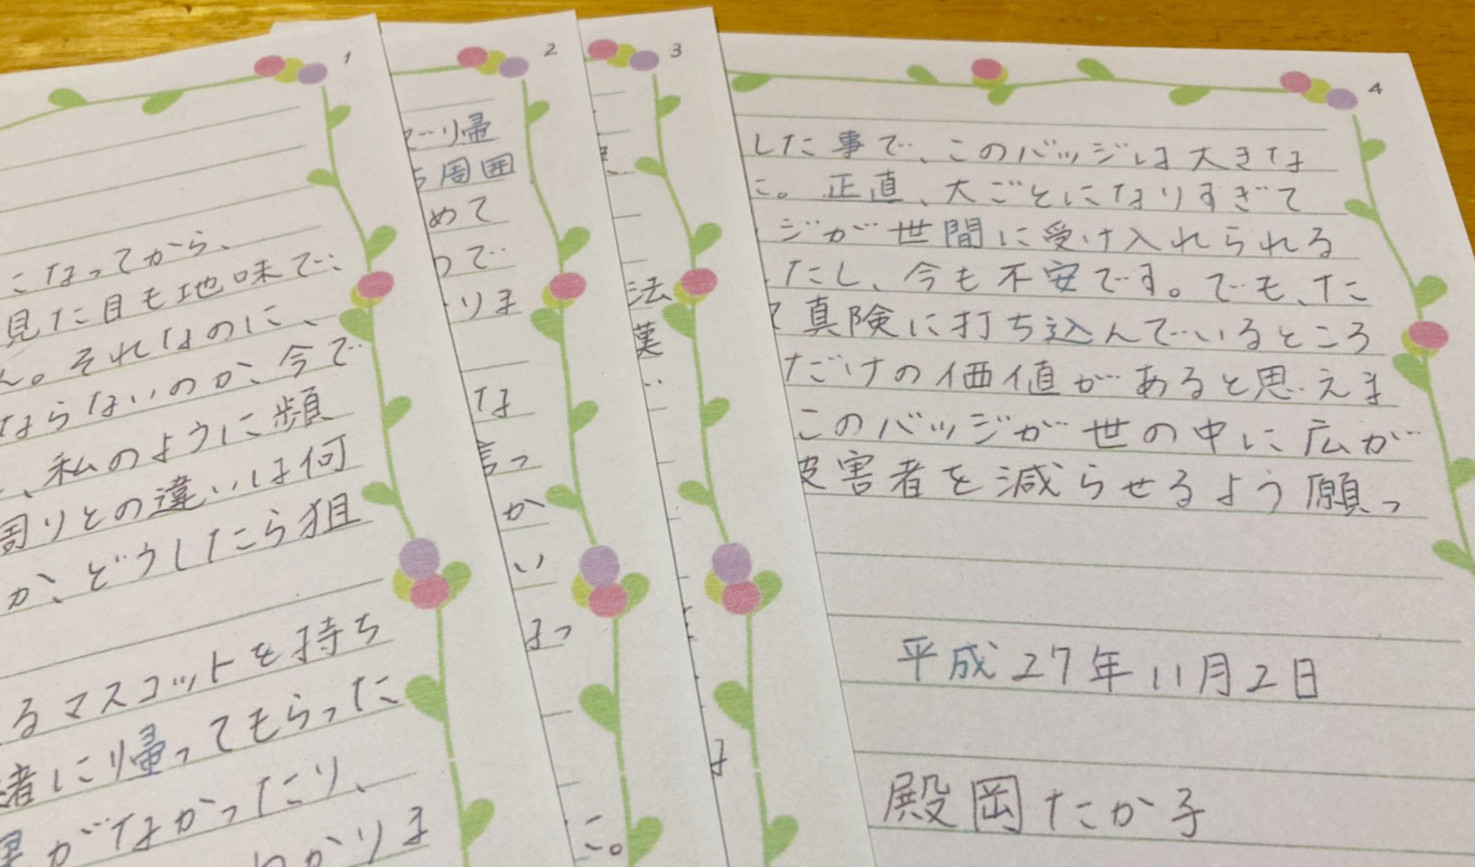 1
こなってから、
見た目も地味で、
ん。それなのに、
ならないのか、今で
、私のように頻
周りとの違いは何
か、どうしたら狙
マスコットを持ち
緒に帰ってもらった
がなかったり、
かりま
2
り帰
周囲
めて
つで
りま
な
言っ
か
い
まっ
こ。
3
法
漢
4
した事で、このバッジは大きな
こ。正直、大ごとになりすぎて
ジが世間に受け入れられる
たし、今も不安です。でも、た
て真険に打ち込んでいるところ
だけの価値があると思えま
このバッジが世の中に広が
被害者を減らせるよう願っ
平成27年11月2日
殿岡たか子